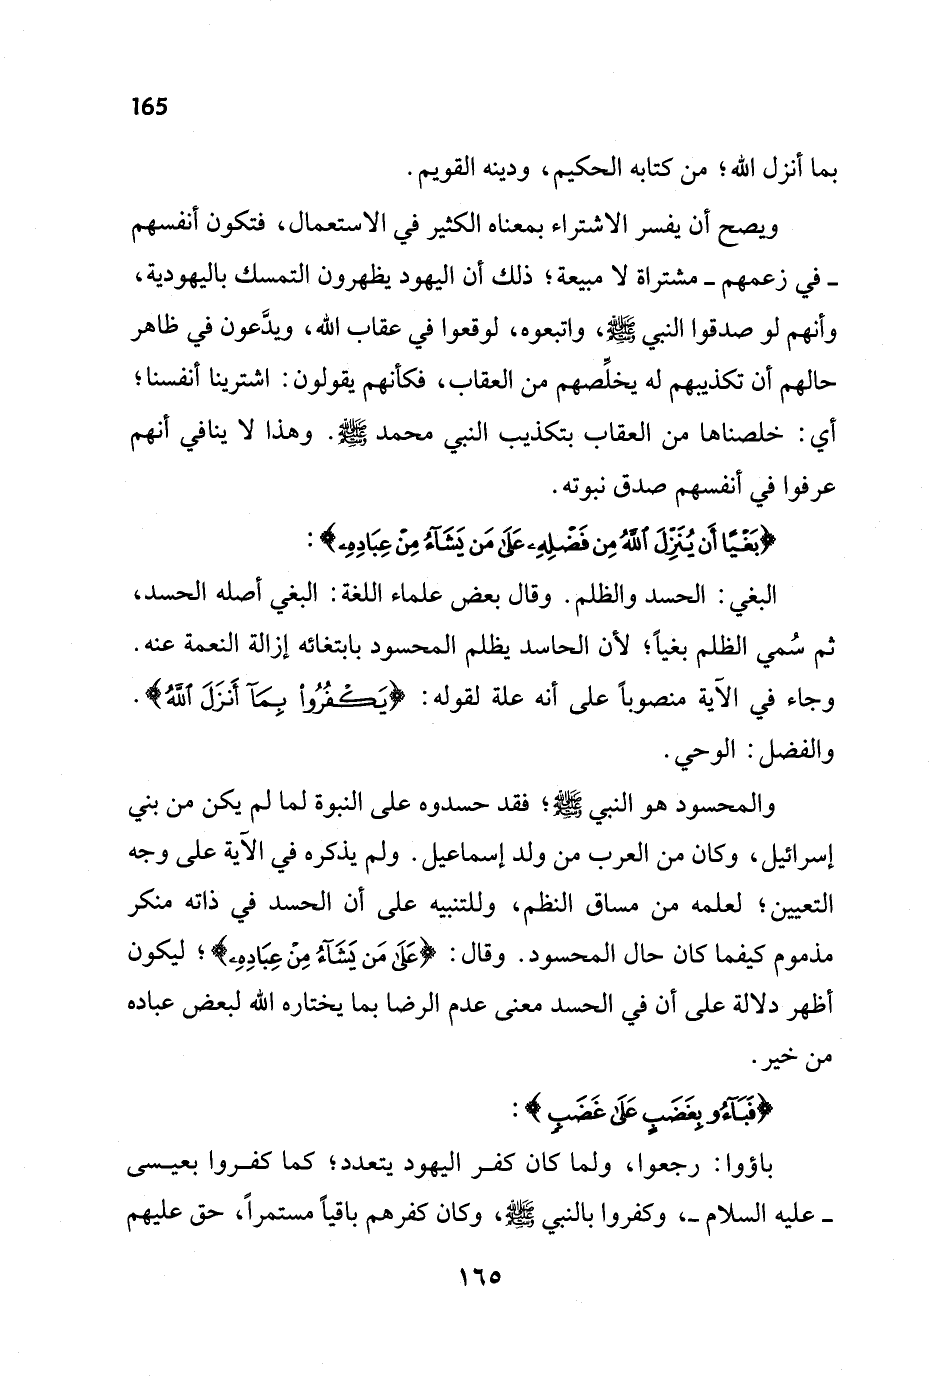 165
بما أنزل الله؛ من كتابه الحكيم، ودينه القويم.
ويصح أن يفسر الاشتراء بمعناه الكثير في الاستعمال، فتكون أنفسهم
ـ في زعمهم ـ مشتراة لا مبيعة؛ ذلك أن اليهود يظهرون التمسك باليهودية،
وأنهم لو صدقوا النبي ﷺ، واتبعوه، لوقعوا في عقاب الله، ويدَّعون في ظاهر
حالهم أن تكذيبهم له يخلِّصهم من العقاب، فكأنهم يقولون: اشترينا أنفسنا؛
أي: خلصناها من العقاب بتكذيب النبي محمد ﷺ. وهذا لا ينافي أنهم
عرفوا في أنفسهم صدق نبوته.
﴿بَغْيًا أَن يُنَزِّلَ ٱللَّهُ مِن فَضْلِهِۦ عَلَىٰ مَن يَشَآءُ مِنْ عِبَادِهِۦ﴾:
البغي: الحسد والظلم. وقال بعض علماء اللغة: البغي أصله الحسد،
ثم سُمي الظلم بغياً؛ لأن الحاسد يظلم المحسود بابتغائه إزالة النعمة عنه.
وجاء في الآية منصوباً على أنه علة لقوله: ﴿يَكْفُرُوا۟ بِمَآ أَنزَلَ ٱللَّهُ﴾.
والفضل: الوحي.
والمحسود هو النبي ﷺ؛ فقد حسدوه على النبوة لما لم يكن من بني
إسرائيل، وكان من العرب من ولد إسماعيل. ولم يذكره في الآية على وجه
التعيين؛ لعلمه من مساق النظم، وللتنبيه على أن الحسد في ذاته منكر
مذموم كيفما كان حال المحسود. وقال: ﴿عَلَىٰ مَن يَشَآءُ مِنْ عِبَادِهِۦ﴾؛ ليكون
أظهر دلالة على أن في الحسد معنى عدم الرضا بما يختاره الله لبعض عباده
من خير.
﴿فَبَآءُو بِغَضَبٍ عَلَىٰ غَضَبٍ﴾:
باؤوا: رجعوا، ولما كان كفر اليهود يتعدد؛ كما كفروا بعيسى
ـ عليه السلام ـ، وكفروا بالنبي ﷺ، وكان كفرهم باقياً مستمراً، حق عليهم
١٦٥